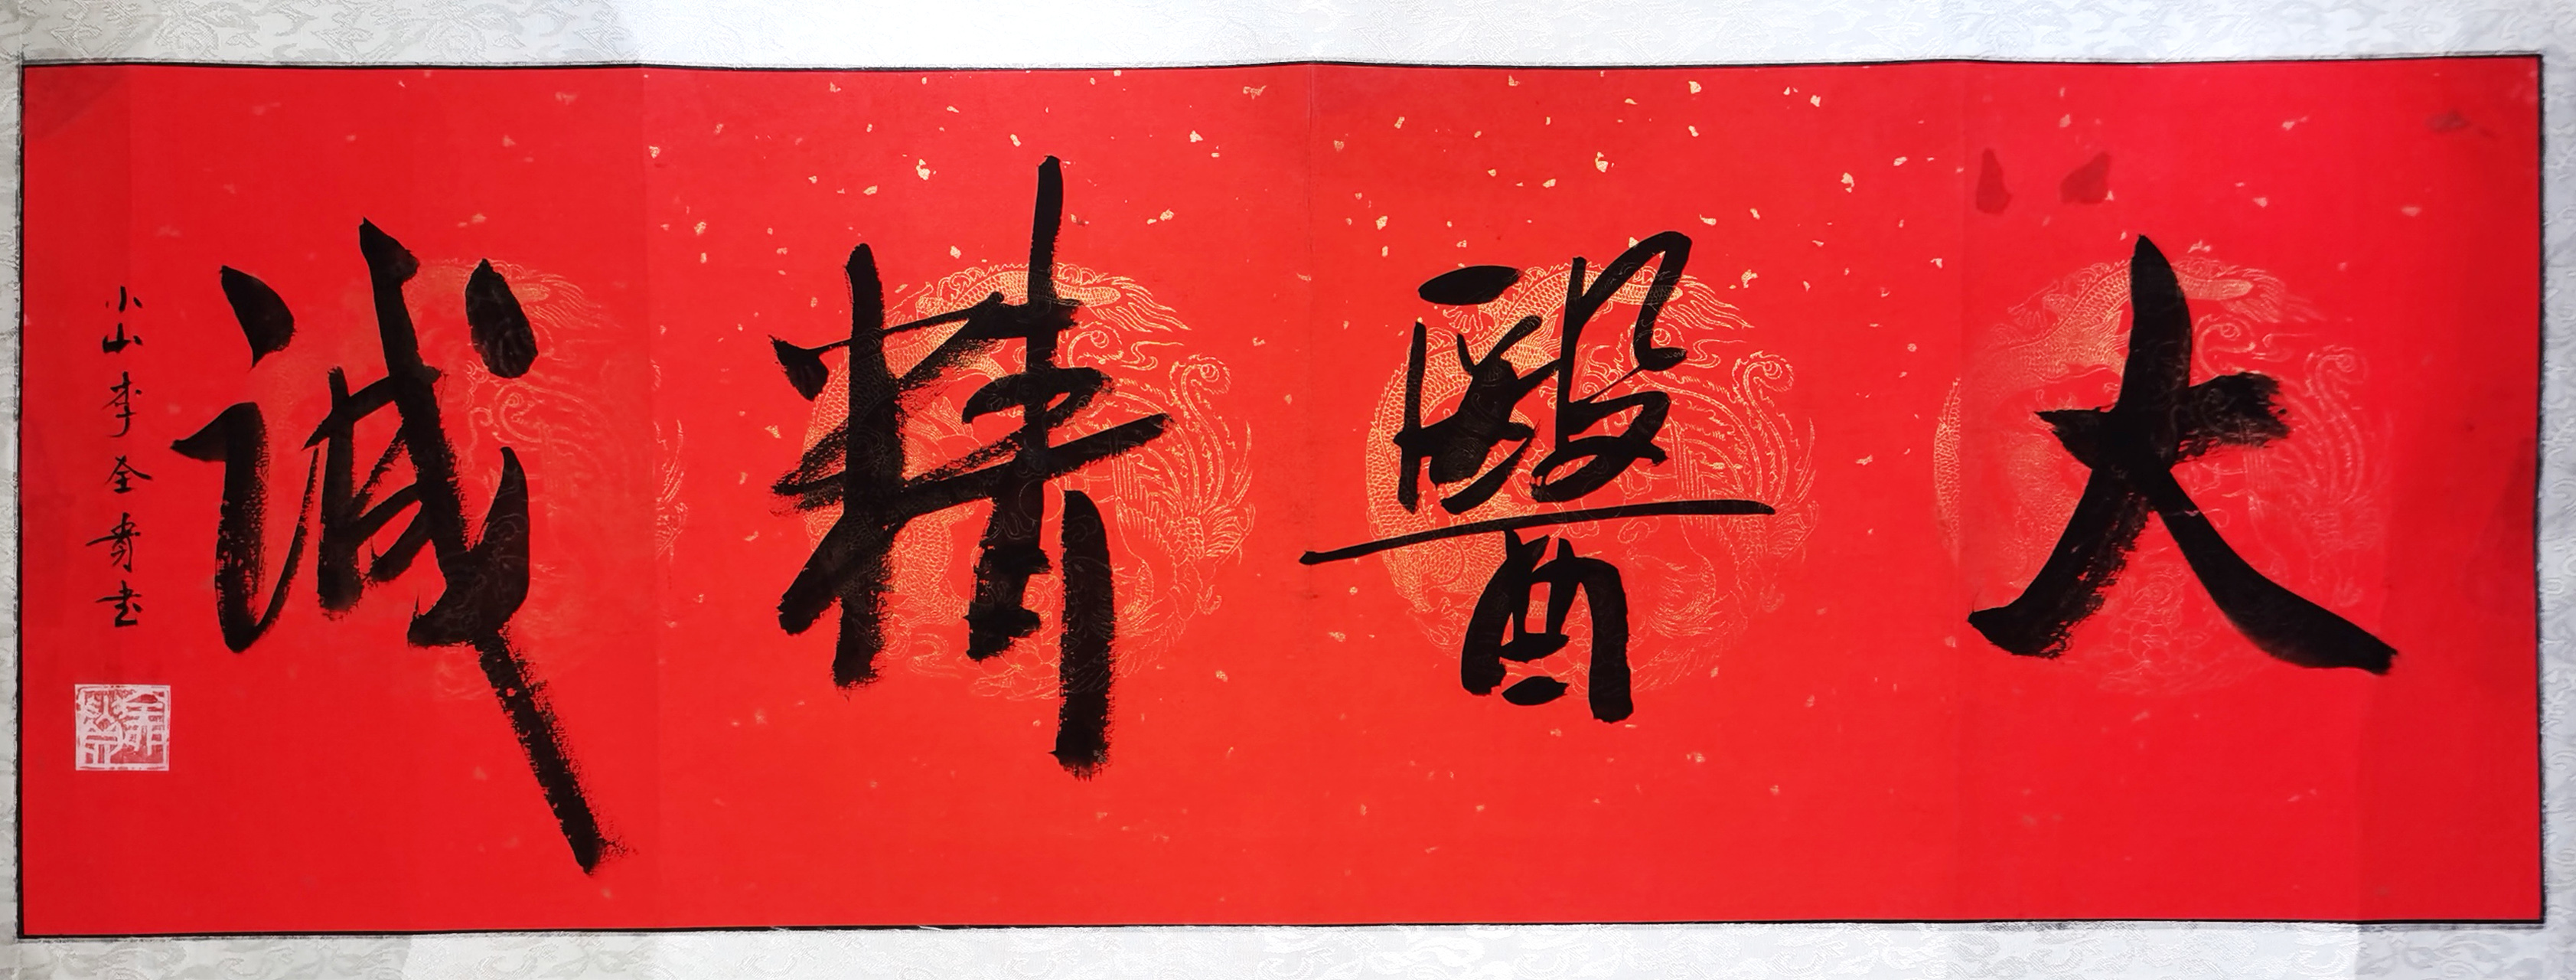 大醫精诚
小山李全贵书